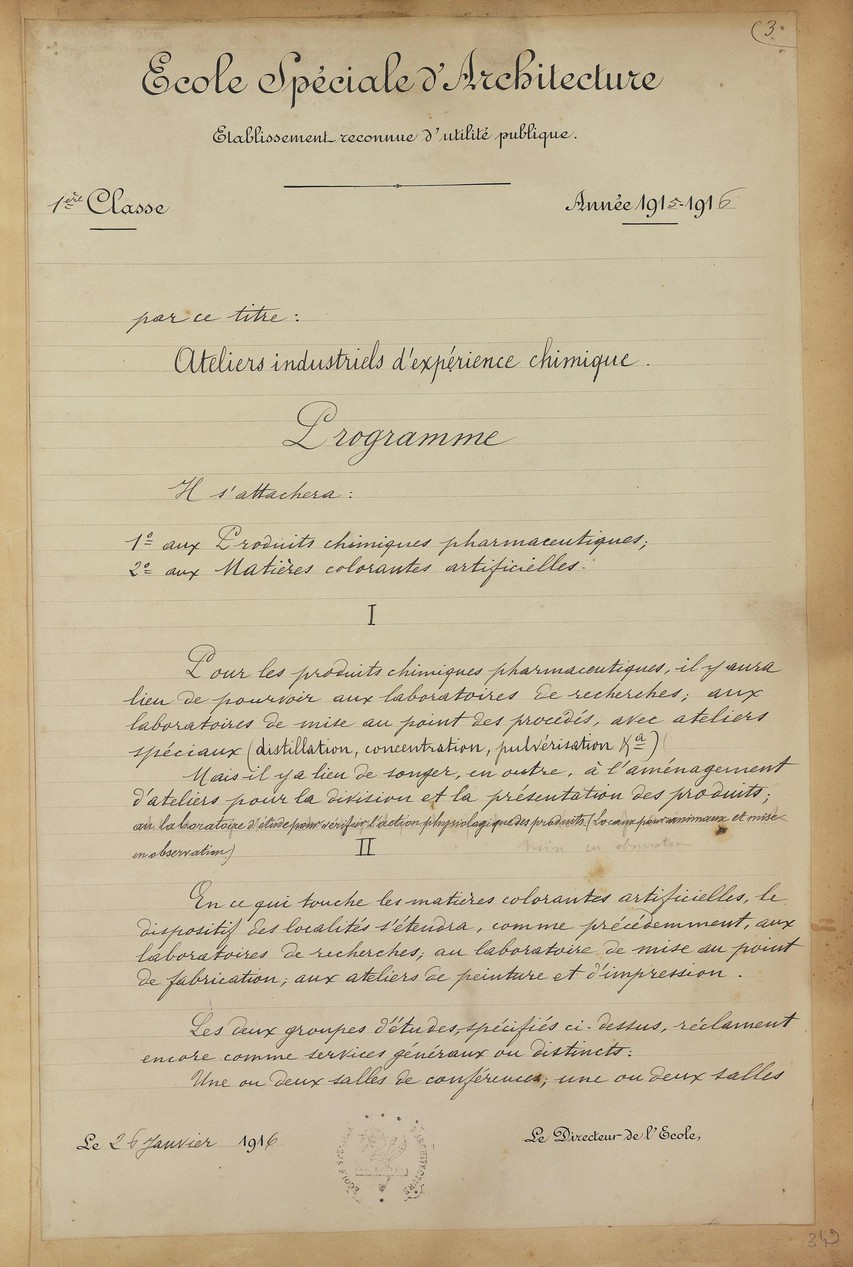 (3.
Ecole Spéciale d'Architecture
Etablissement reconnue d'utilité publique.
1ère Classe
Année 1915-1916
par ce titre :
Ateliers industriels d'expérience chimique.
Programme
Il s'attachera :
1º aux Produits chimiques pharmaceutiques;
2º aux Matières colorantes artificielles.
I
Pour les produits chimiques pharmaceutiques, il y aura
lieu de pourvoir aux laboratoires de recherches; aux
laboratoires de mise au point des procédés, avec ateliers
spéciaux (distillation, concentration, pulvérisation &a)
Mais il y a lieu de songer, en outre, à l'aménagement
d'ateliers pour la division et la présentation des produits;
au laboratoire d'étude pour vérifier l'action physiologique des produits. (Locaux pour animaux et mise
en observation)
mise en observation
II
En ce qui touche les matières colorantes artificielles, le
dispositif des localités s'étendra, comme précédemment, aux
laboratoires de recherches; au laboratoire de mise au point
de fabrication; aux ateliers de peinture et d'impression.
Les deux groupes d'études, spécifiés ci-dessus, réclament
encore comme services généraux ou distincts:
Une ou deux salles de conférences; une ou deux salles
Le 26 Janvier 1916
Le Directeur de l'Ecole,
ECOLE SPECIALE D'ARCHITECTURE